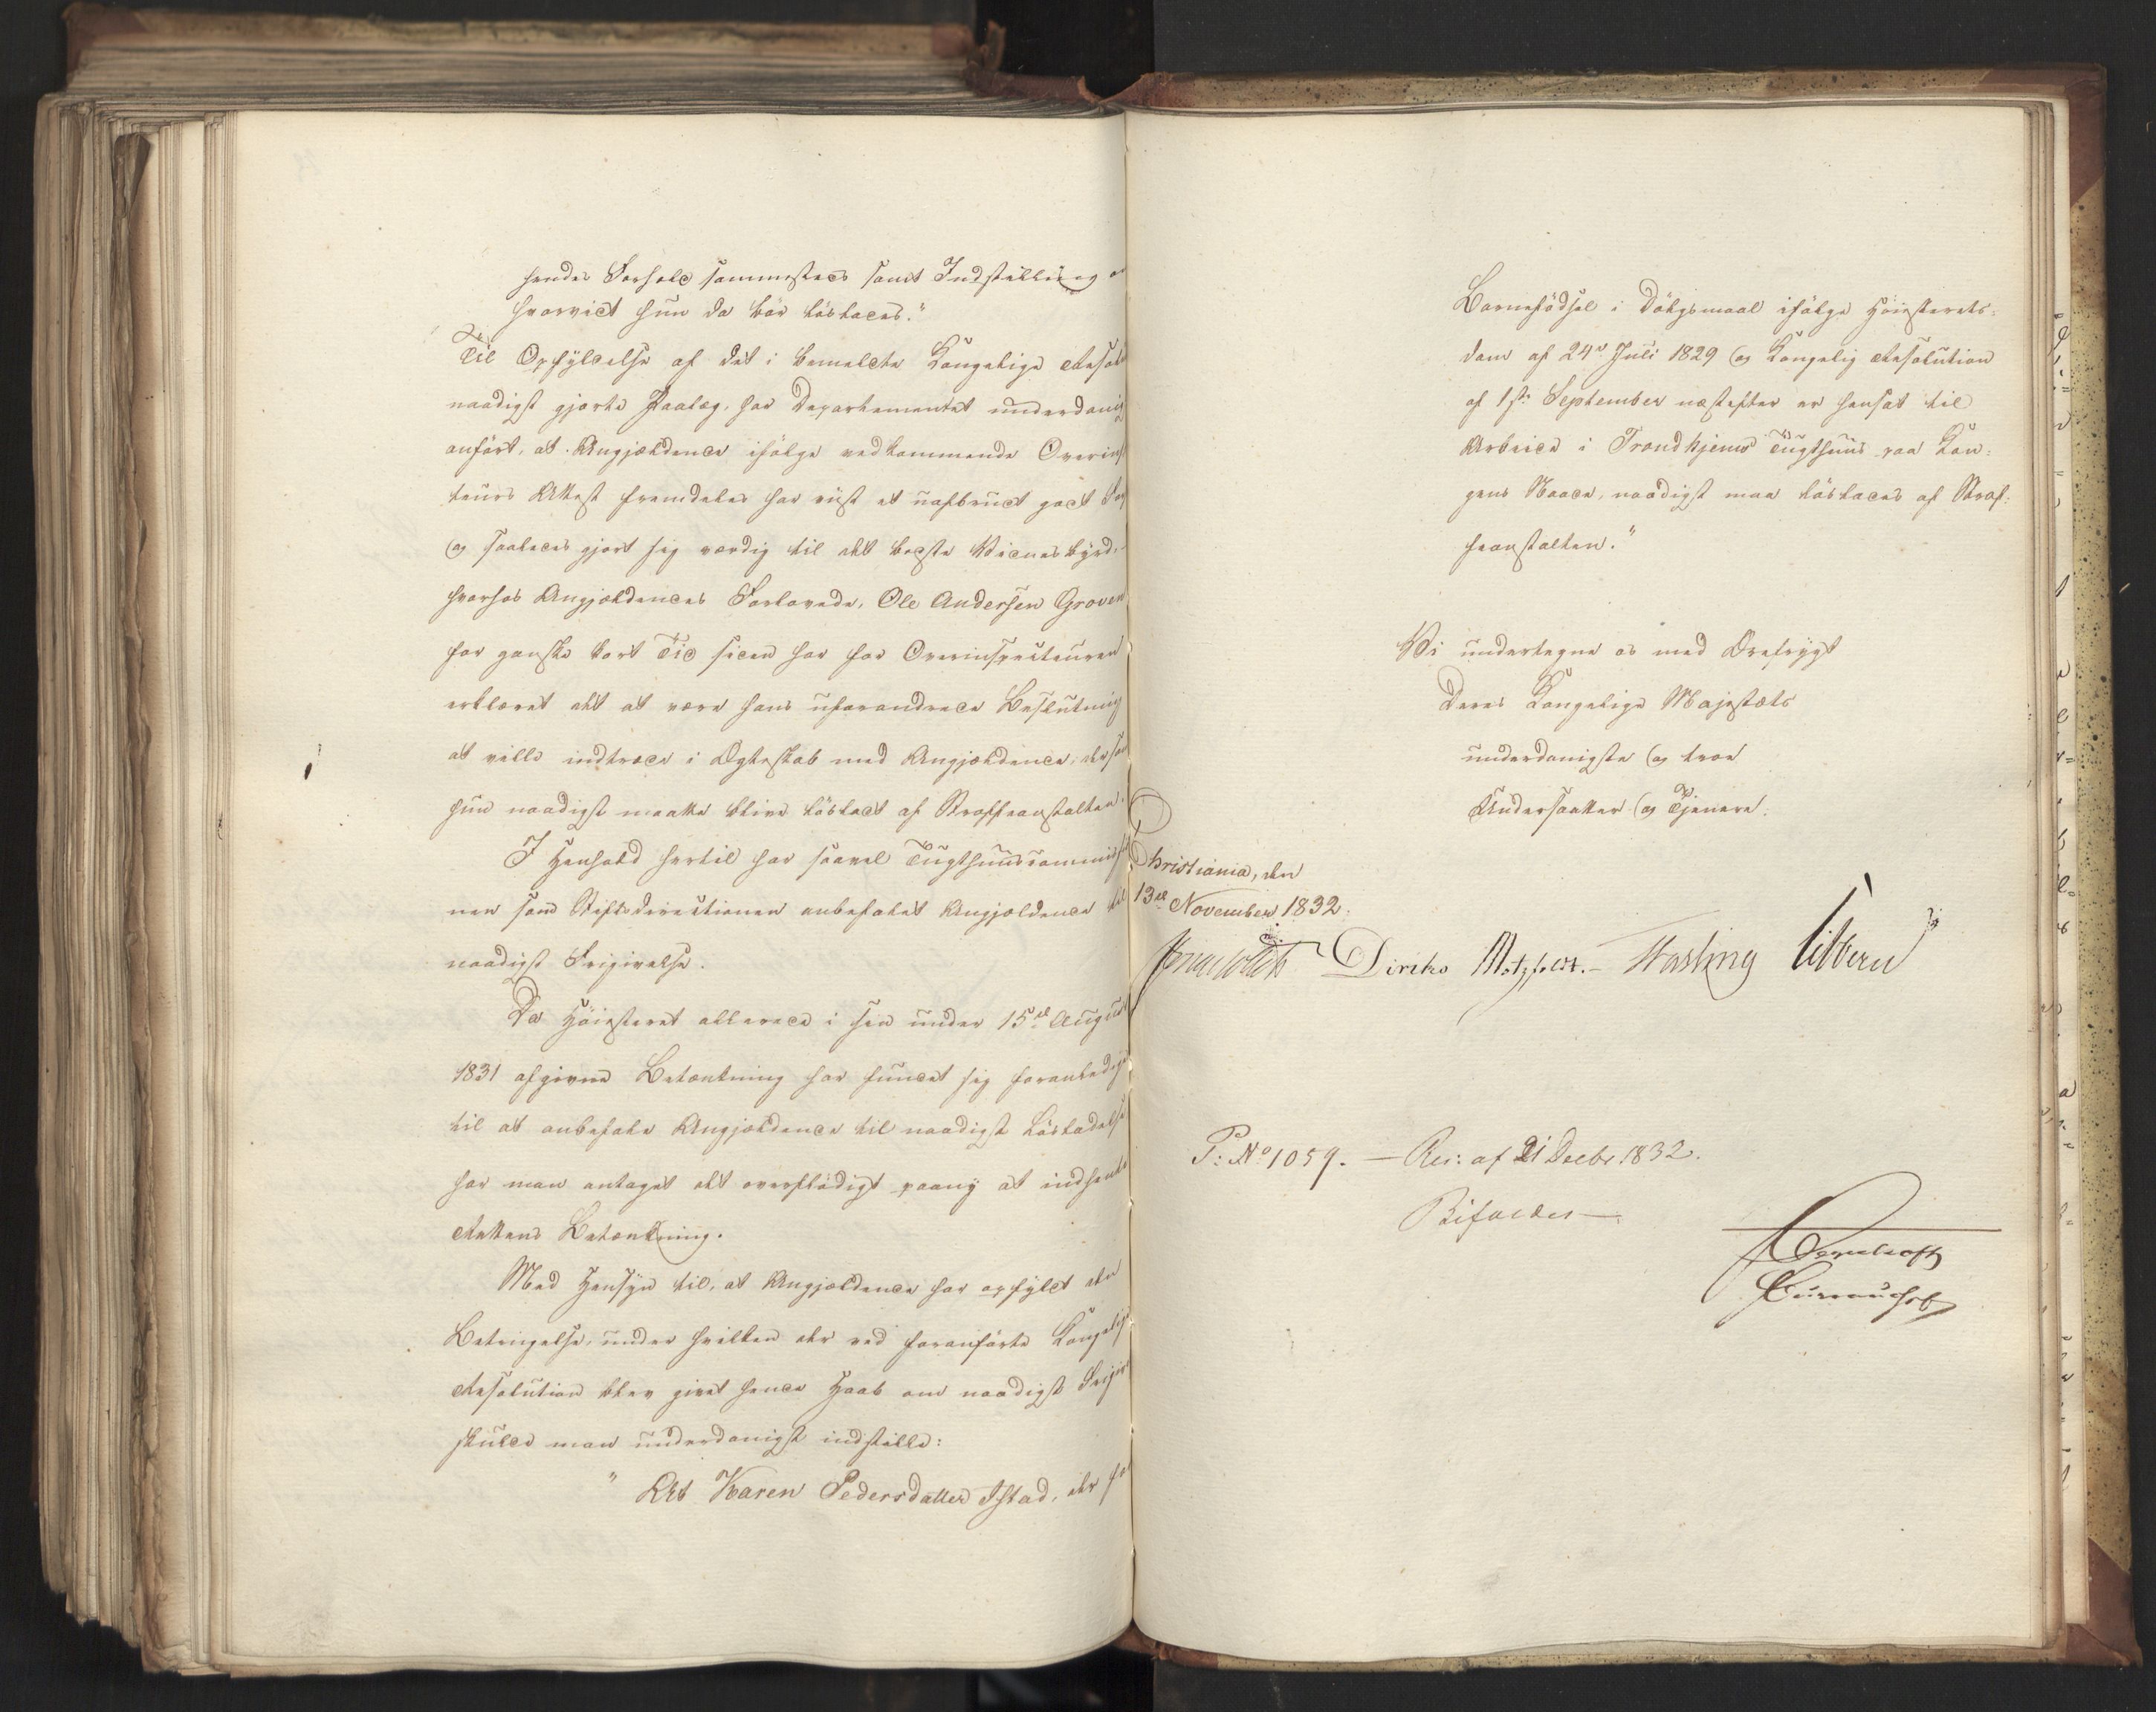 hendes Forhold sammesteds samt Indstilling
hvorvidt hun da bør løslades."
Til Opfyldelse af det i bemeldte Kongelige Resol
naadigst gjorte Paalæg, har Departementet underdanig
anført, at Angjældende ifølge vedkommende Overins
teurs Attest fremdeles har viist et uafbrudt godt For
og saaledes gjort sig værdig til det bedste Vidnesbyrd,
hvorhos Angjældendes Forlovede, Ole Andersen Groven
for ganske kort Tid siden har for Overinspecteuren
erklæret det at være hans uforandrede Beslutning
at ville indtræde i Ægteskab med Angjældende, dersom
hun naadigst maatte blive løsladt af Straffeanstalten.
I Henhold hertil har saavel Tugthuuscommis
nen som Stiftsdirectionen anbefalet Angjældende til
naadigst Frigivelse.
Da Høiesteret allerede i sin under 15de August
1831 afgivne Betænkning har fundet sig foranlediget
til at anbefale Angjældende til naadigst Løsladelse
har man antaget det overflødigt paany at indhente
Rettens Betænkning.
Med Hensyn til, at Angjældende har opfyldt den
Betingelse, under hvilken der ved foranførte Kongelige
Resolution blev givet hende Haab om naadigst Frigiv
skulde man underdanigst indstille:
" At Karen Pedersdatter Istad, der for
Barnefødsel i Dølgsmaal ifølge Høiesterets-
dom af 24de Juli 1829 og Kongelig Resolution
af 1ste September næstefter er hensat til
Arbeide i Trondhjems Tugthuus paa Kon-
gens Naade, naadigst maa løslades af Straf-
feanstalten."
Vi undertegne os med Ærefrygt
Deres Kongelige Majestæts
underdanigste og troe
Undersaatter og Tjenere.
Christiania, den
13de November 1832.
Diriks Motzfeldt. Fasting Sibbern
P: No 1059. — Res: af 21 Decbr 1832.
Bifaldes —